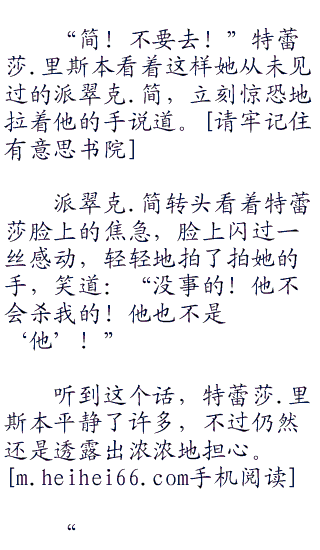 “简！不要去！”特蕾
莎.里斯本看着这样她从未见
过的派翠克.简，立刻惊恐地
拉着他的手说道。[请牢记住
有意思书院]
派翠克.简转头看着特蕾
莎脸上的焦急，脸上闪过一
丝感动，轻轻地拍了拍她的
手，笑道：“没事的！他不
会杀我的！他也不是
‘他’！”
听到这个话，特蕾莎.里
斯本平静了许多，不过仍然
还是透露出浓浓地担心。
[m.heihei66.com手机阅读]
“